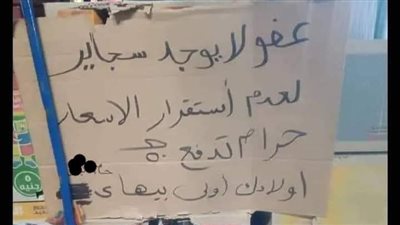 عفو لا يوجد سجاير
لعدم أستقرار الاسعار
حرام تدفع ٥٠ ج
اولادك اولى بيها
٥
جنيه